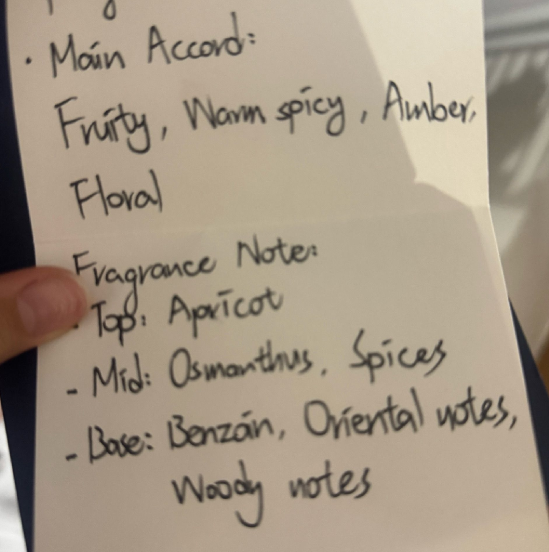 · Main Accord:
Fruity, Warm spicy, Amber,
Floral
Fragrance Note:
- Top: Apricot
- Mid: Osmanthus, Spices
- Base: Benzoin, Oriental notes,
Woody notes